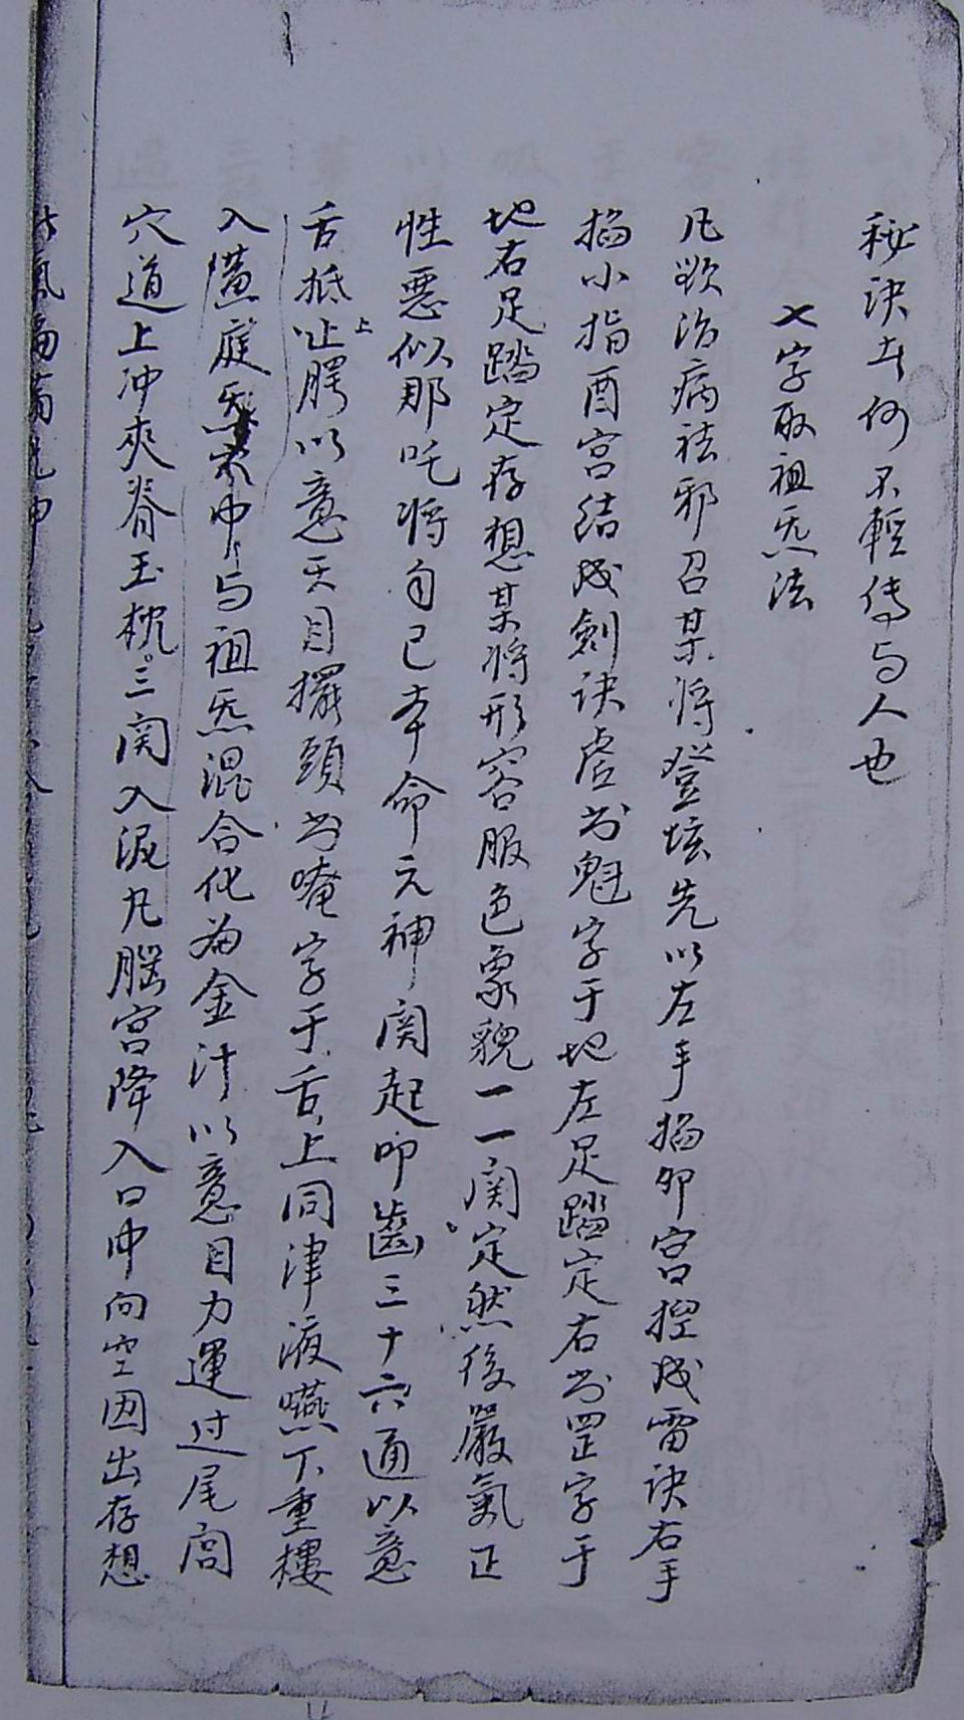 秘訣与何不輕传与人也
乂字取祖炁法
凡欲治病祛邪召某将登坛先以左手搯卯宫揑成雷诀右手
搯小指酉宫结成劍诀虚书魁字于地左足踏定右书罡字于
地右足踏定存想某将形容服色象貌一一関定然後嚴氣正
性惡似那吒将自己本命元神関起叩齒三十六通以意
舌抵上腭以意天目擺頭书唵字于舌上同津液嚥下重樓
入黄庭炁穴中与祖炁混合化為金汁以意目力運过尾闾
穴道上冲夾脊玉枕三関入泥丸腦宫降入口中向空囟出存想